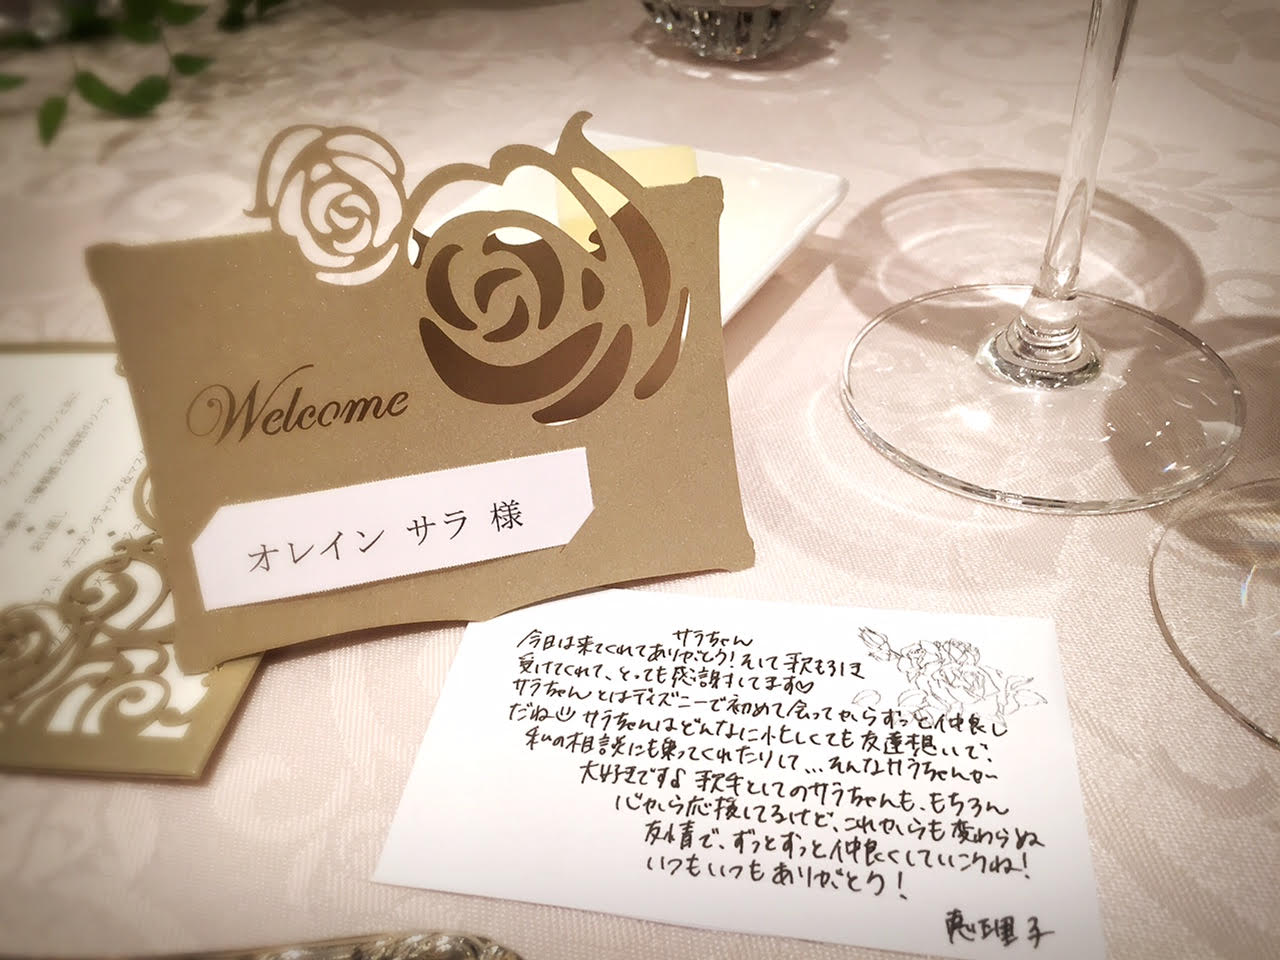 Welcome
オレイン サラ 様
サラちゃん
今日は来てくれてありがとう!そして歌も引き
受けてくれて、とっても感謝してます♡
サラちゃんとはディズニーで初めて会ってからずっと仲良し
だね サラちゃんはどんなに忙しくても友達想いで、
私の相談にも乗ってくれたりして...そんなサラちゃんが
大好きです♪ 歌手としてのサラちゃんも、もちろん
心から応援してるけど、これからも変わらぬ
友情で、ずっとずっと仲良くしていこうね!
いつもいつもありがとう!
恵理子